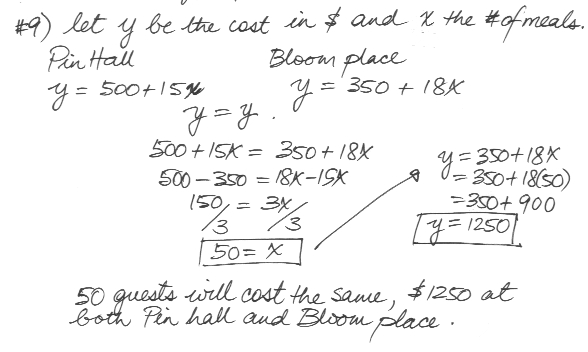 #9) let y be the cost in $ and x the # of meals.
Pin Hall Bloom place
y = 500+15x y = 350 + 18x
y = y.
500 + 15x = 350 + 18x
500 - 350 = 18x - 15x
150/3 = 3x/3
50 = x
y = 350+18x
= 350+18(50)
= 350+ 900
y = 1250
50 guests will cost the same, $1250 at
both Pin hall and Bloom place.